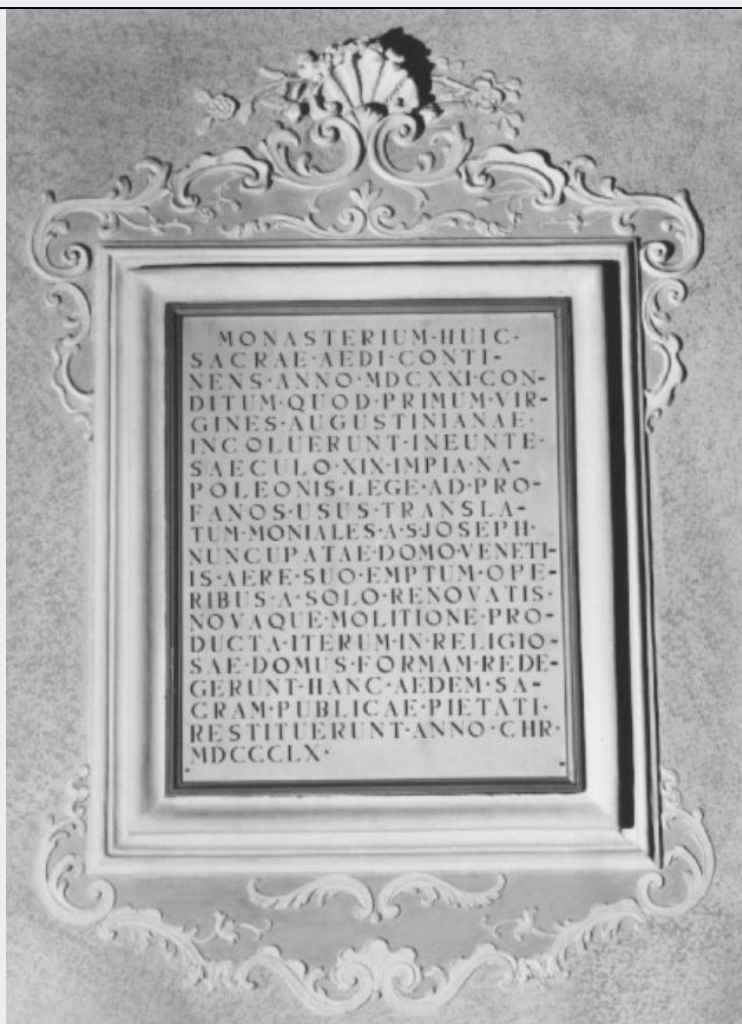 MONASTERIUM·HUIC·
SACRAE·AEDI·CONTI-
NENS·ANNO·MDCXXI·CON-
DITUM·QUOD·PRIMUM·VIR-
GINES·AUGUSTINIANAE·
INCOLUERUNT·INEUNTE·
SAECULO·XIX·IMPIA·NA-
POLEONIS·LEGE·AD·PRO-
FANOS·USUS·TRANSLA-
TUM·MONIALES·A·S·JOSEPH·
NUNCUPATAE·DOMO·VENETI-
IS·AERE·SUO·EMPTUM·OPE-
RIBUS·A·SOLO·RENOVATIS·
NOVAQUE·MOLITIONE·PRO-
DUCTA·ITERUM·IN·RELIGIO-
SAE·DOMUS·FORMAM·REDE-
GERUNT·HANC·AEDEM·SA-
CRAM·PUBLICAE·PIETATI·
RESTITUERUNT·ANNO·CHR·
MDCCCLX·